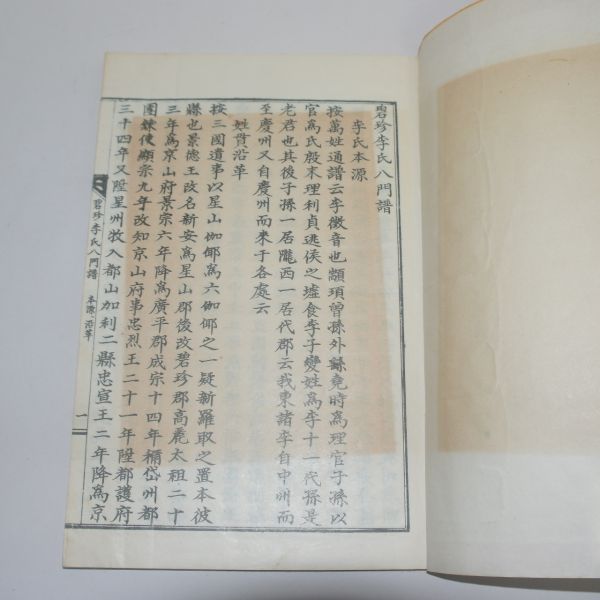 碧珍李氏八門譜
李氏本源
按萬姓通譜云李徵音也顓頊曾孫外繇堯時爲理官子孫以
官爲氏殷末理利貞逃侯之墟食李子變姓爲李十一代孫是
老君也其後子孫一居隴西一居代郡云我東諸李自中州而
至慶州又自慶州而來于各處云
姓貫沿革
按三國遺事以星山伽倻爲六伽倻之一疑新羅取之置本彼
縣也景德王改名新安爲星山郡後改碧珍郡高麗太祖二十
三年爲京山府景宗六年降爲廣平郡成宗十四年稱岱州都
團練使顯宗九年改知京山府事忠烈王二十一年陞都護府
三十四年又陞星州牧入都山加利二縣忠宣王二年降爲京
碧珍李氏八門譜 本源 沿革 一